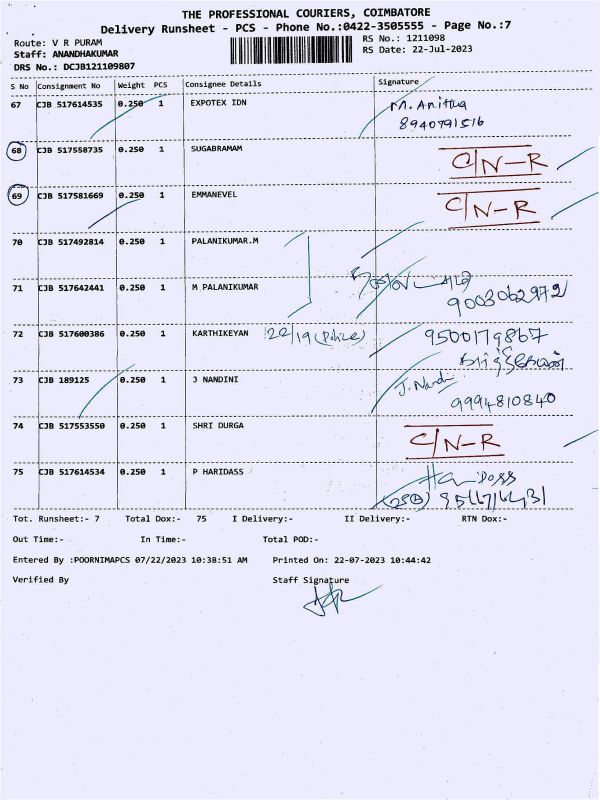 THE PROFESSIONAL COURIERS, COIMBATORE
Delivery Runsheet - PCS - Phone No.:0422-3505555 - Page No.:7
Route: V R PURAM
RS No.: 1211098
Staff: ANANDHAKUMAR
RS Date: 22-Jul-2023
DRS No.: DCJB121109807
S No Consignment No Weight PCS Consignee Details Signature
67 CJB 517614535 0.250 1 EXPOTEX IDN M. Anitha
8940791516
68 CJB 517558735 0.250 1 SUGABRAMAM C/N-R
69 CJB 517581669 0.250 1 EMMANEVEL C/N-R
70 CJB 517492814 0.250 1 PALANIKUMAR.M
71 CJB 517642441 0.250 1 M PALANIKUMAR
9003062972
72 CJB 517600386 0.250 1 KARTHIKEYAN 22/19 (Police) 9500179867
கார்த்திகேயன்
73 CJB 189125 0.250 1 J NANDINI J. Nandini
9994810840
74 CJB 517553550 0.250 1 SHRI DURGA C/N-R
75 CJB 517614534 0.250 1 P HARIDASS
Tot. Runsheet:- 7 Total Dox:- 75 I Delivery:- II Delivery:- RTN Dox:-
Out Time:- In Time:- Total POD:-
Entered By :POORNIMAPCS 07/22/2023 10:38:51 AM Printed On: 22-07-2023 10:44:42
Verified By Staff Signature